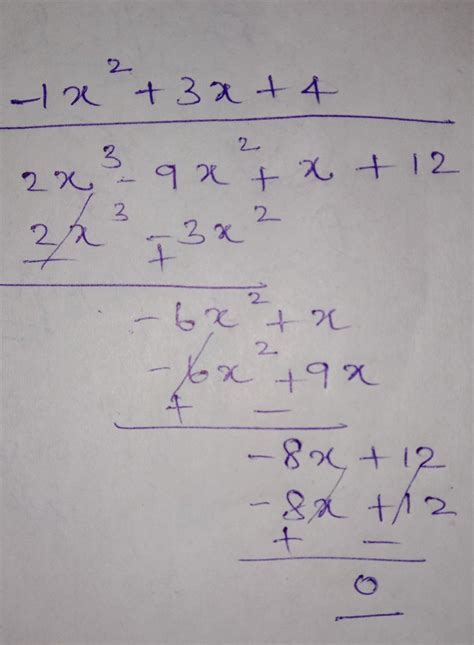 -1x² + 3x + 4
2x³ - 9x² + x + 12
2x³ - 3x²
- +
-6x² + x
-6x² + 9x
+ -
-8x + 12
-8x + 12
+ -
0